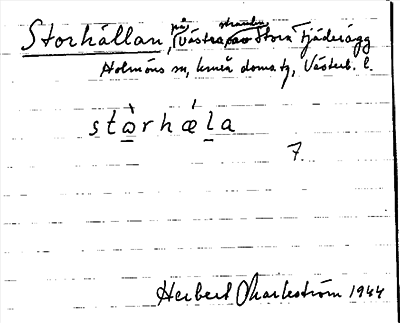 Storhällan, på västra stranden Stora Fjäderägg
Holmöns sn, Umeå doms tg, Västerb. l.
stò̱rhǽḻa
7.
Herbert Markström 1944